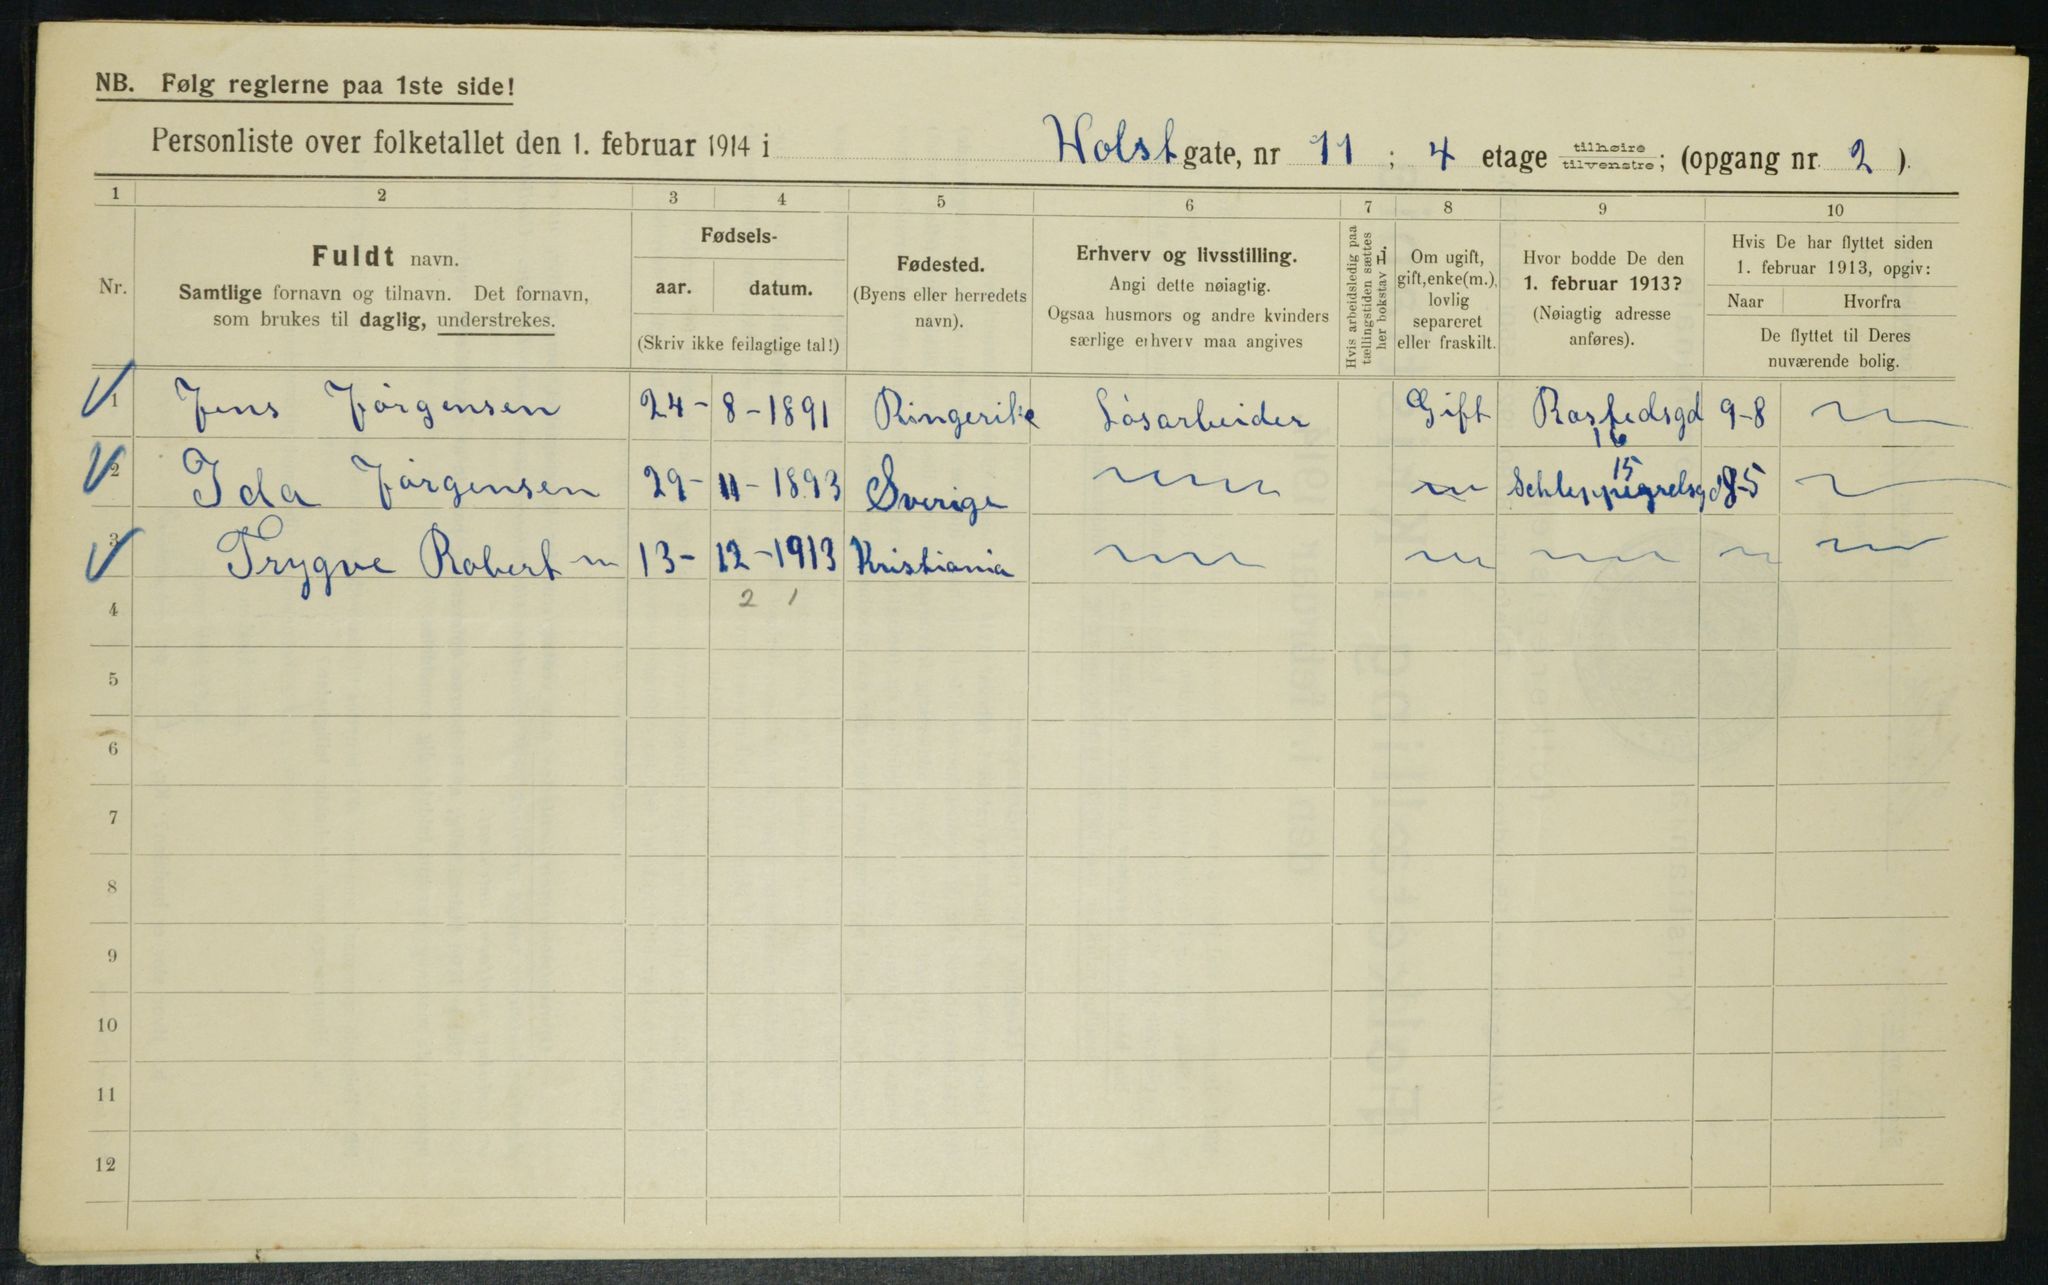 NB. Følg reglerne paa 1ste side!
Personliste over folketallet den 1. februar 1914 i Holst gate, nr 11 ; 4 etage tilhøire/tilvenstre; (opgang nr 2 ).
1 2 3 4 5 6 7 8 9 10
Nr.
Fuldt navn.
Samtlige fornavn og tilnavn. Det fornavn,
som brukes til daglig, understrekes.
Fødsels-
aar. datum.
(Skriv ikke feilagtige tal!)
Fødested.
(Byens eller herredets
navn).
Erhverv og livsstilling.
Angi dette nøiagtig.
Ogsaa husmors og andre kvinders
særlige erhverv maa angives
Hvis arbeidsledig paa
tællingstiden sættes
her bokstav L.
Om ugift,
gift, enke(m.),
lovlig
separeret
eller fraskilt.
Hvor bodde De den
1. februar 1913?
(Nøiagtig adresse
anføres).
Hvis De har flyttet siden
1. februar 1913, opgiv:
Naar Hvorfra
De flyttet til Deres
nuværende bolig.
1 Jens Jörgensen 24 - 8 - 1891 Ringerike Lösarbeider Gift Rastedsgd 16 9-8
2 Ida Jörgensen 29 - 11 - 1893 Sverige Schleppegrelsgd 15
3 Trygve Robert 13 - 12 - 1913 Kristiania
4 2 1
5
6
7
8
9
10
11
12